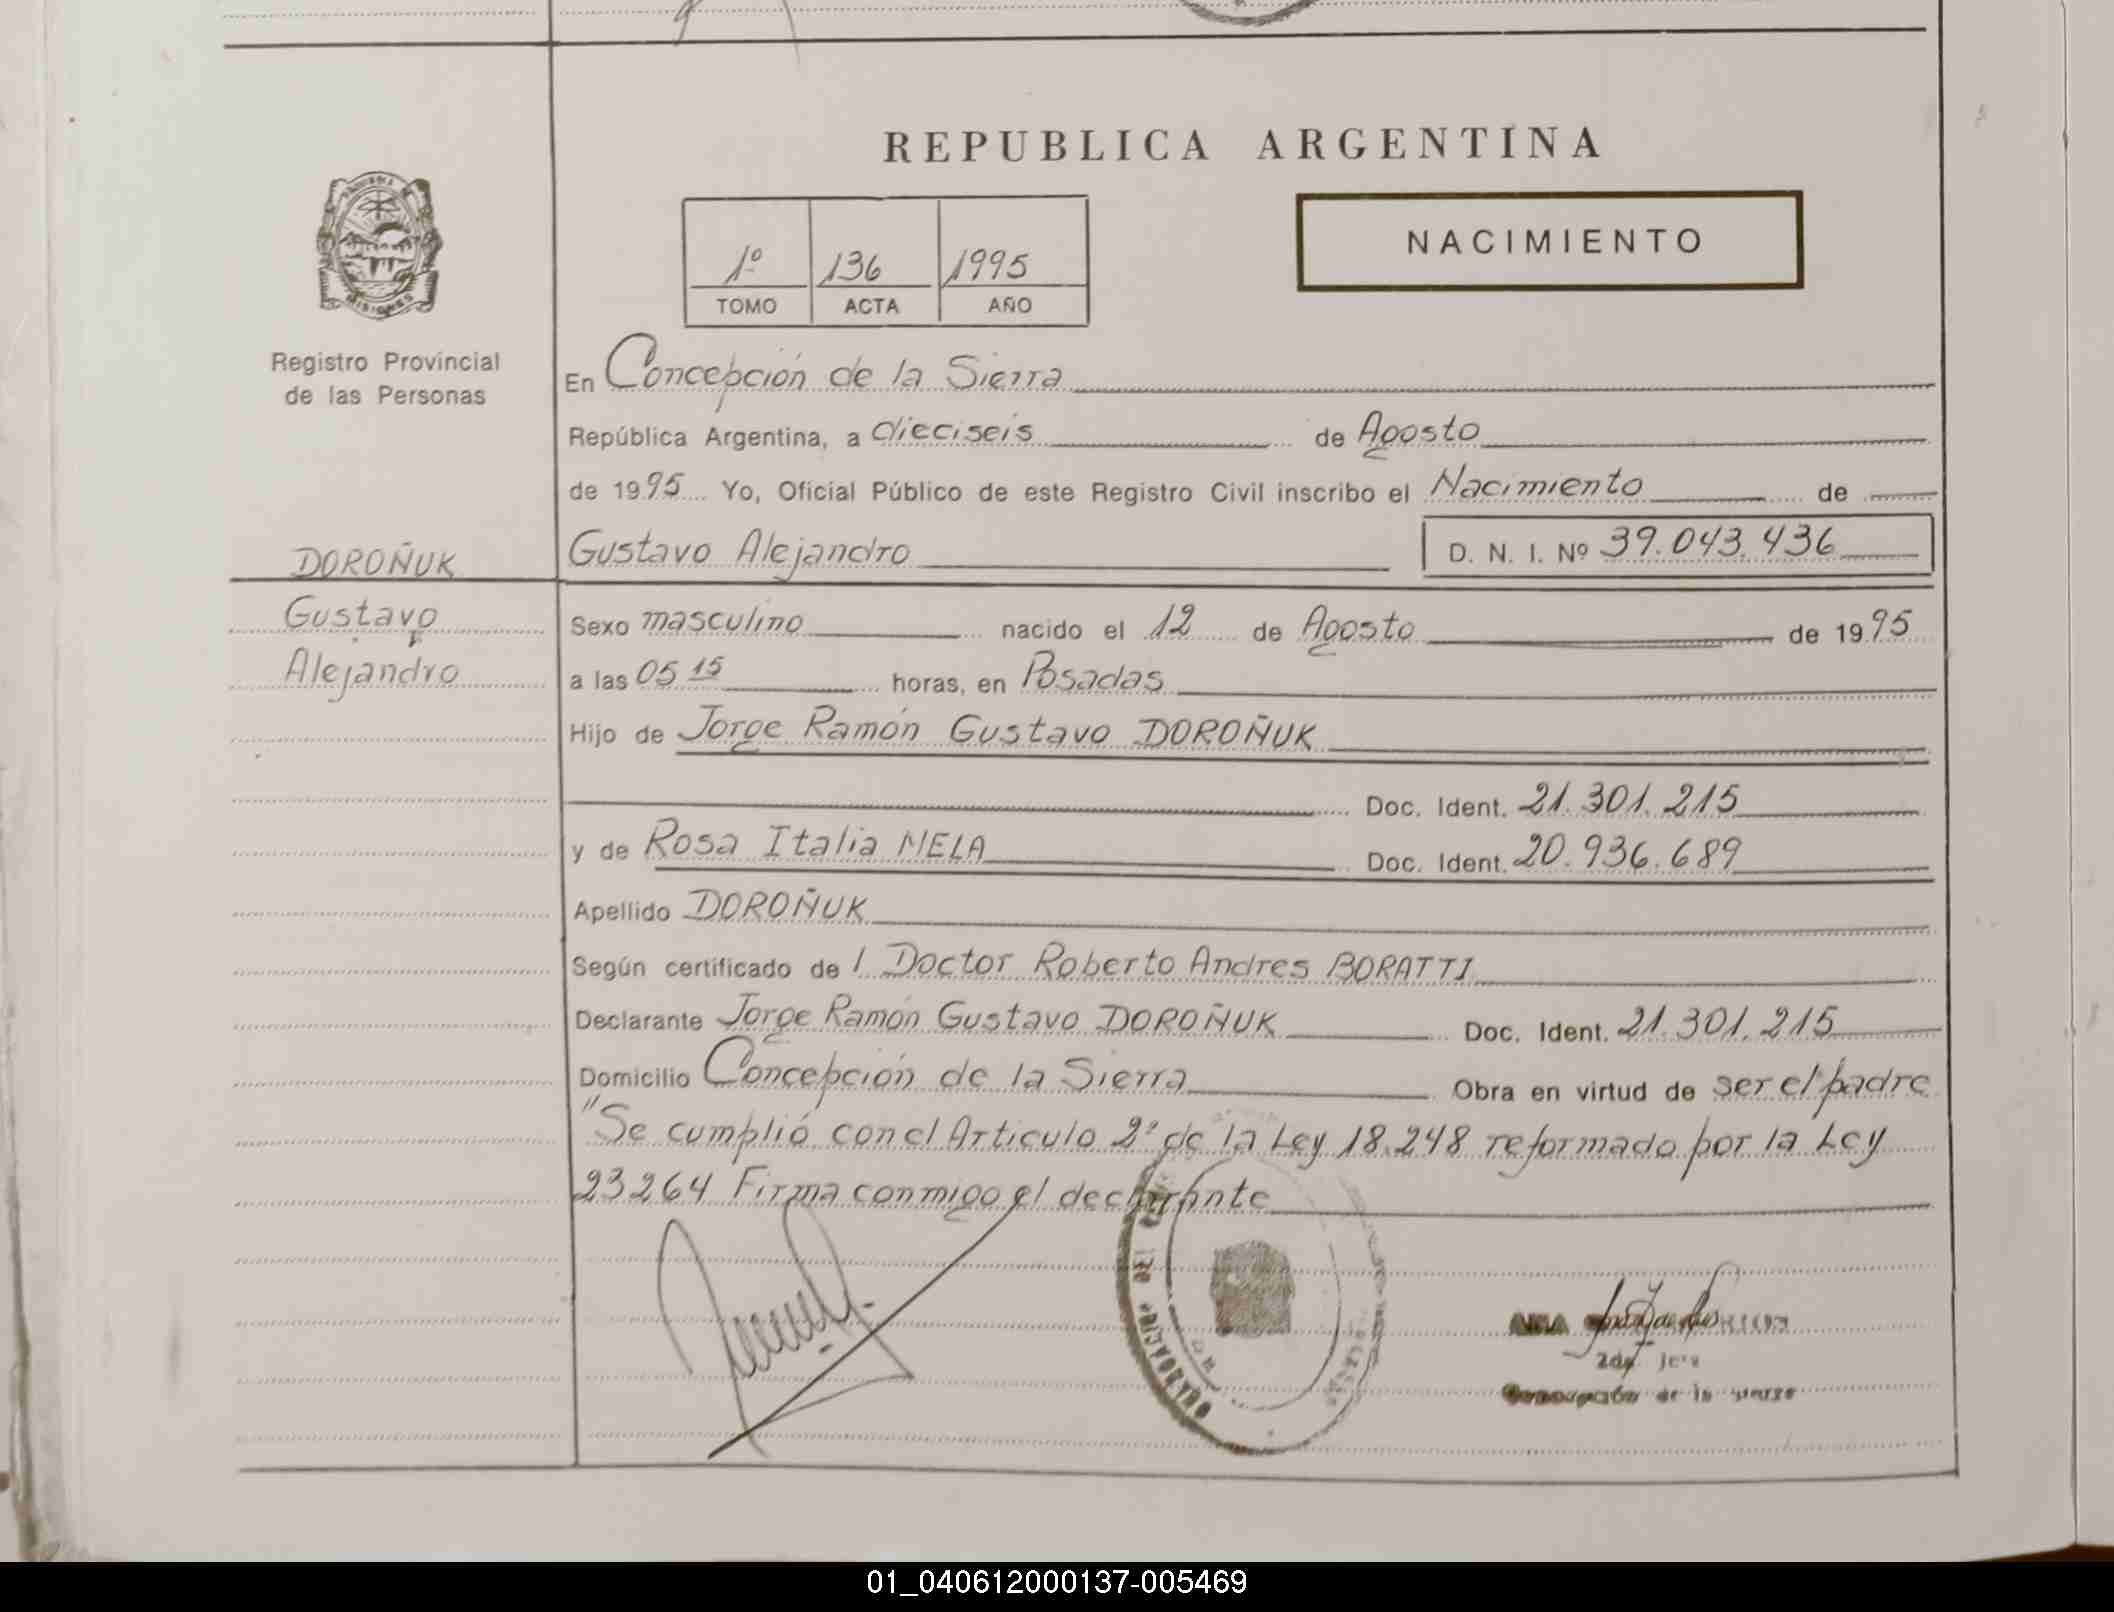 REPUBLICA ARGENTINA
NACIMIENTO
1º 136 1995
TOMO ACTA AÑO
MISIONES
Registro Provincial
de las Personas
En Concepción de la Sierra
República Argentina, a dieciseis de Agosto
de 1995 Yo, Oficial Público de este Registro Civil inscribo el Nacimiento de
DOROÑUK
Gustavo Alejandro D. N. I. Nº 39.043.436
Gustavo
Alejandro
Sexo masculino nacido el 12 de Agosto de 1995
a las 05 15 horas, en Posadas
Hijo de Jorge Ramón Gustavo DOROÑUK
Doc. Ident. 21.301.215
y de Rosa Italia MELA Doc. Ident. 20.936.689
Apellido DOROÑUK
Según certificado de l Doctor Roberto Andres BORATTI
Declarante Jorge Ramón Gustavo DOROÑUK Doc. Ident. 21.301.215
Domicilio Concepción de la Sierra Obra en virtud de ser el padre
"Se cumplió con el Articulo 2º de la Ley 18.248 reformado por la Ley
23264 Firma conmigo el declarante
ANA
Concepción de la Sierra
01_040612000137-005469